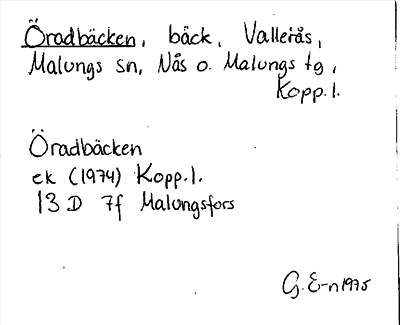 Öradbäcken, bäck, Vallerås,
Malungs sn, Nås o. Malungs tg,
Kopp.l.
Öradbäcken
ek (1974) Kopp.l.
13 D 7f Malungsfors
G. E-n 1975